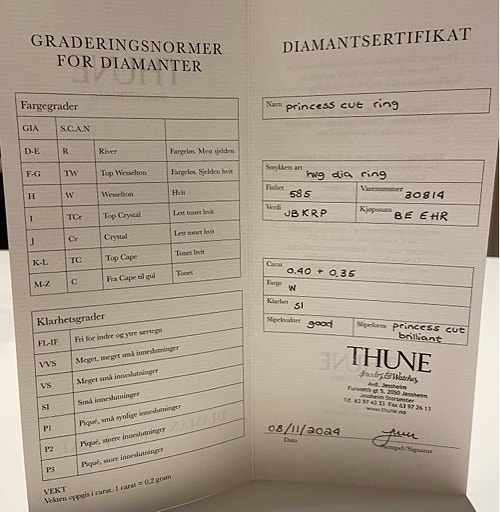 GRADERINGSNORMER
FOR DIAMANTER
Fargegrader
GIA S.C.A.N
D-E R River Fargeløs. Mest sjelden
F-G TW Top Wesselton Fargeløs. Sjelden hvit
H W Wesselton Hvit
I TCr Top Crystal Lett tonet hvit
J Cr Crystal Lett tonet hvit
K-L TC Top Cape Tonet hvit
M-Z C Fra Cape til gul Tonet
Klarhetsgrader
FL-IF Fri for indre og ytre særtegn
VVS Meget, meget små inneslutninger
VS Meget små inneslutninger
SI Små inneslutninger
P1 Piqué, små synlige inneslutninger
P2 Piqué, større inneslutninger
P3 Piqué, store inneslutninger
VEKT
Vekten oppgis i carat. 1 carat = 0,2 gram
DIAMANTSERTIFIKAT
Navn princess cut ring
Smykkets art hvg dia ring
Finhet 585 Varenummer 30814
Verdi JBKRP Kjøpssum BE EHR
Carat 0.40 + 0.35
Farge W
Klarhet SI
Slipekvalitet good Slipeform princess cut
brilliant
THUNE
Jewelry & Watches
Avd. Jessheim
Furuseth-gt 5, 2050 Jessheim
Jessheim Storsenter
Tlf. 63 97 43 33 Fax 63 97 26 13
www.thune.no
08/11/2024
Dato Stempel/Signatur